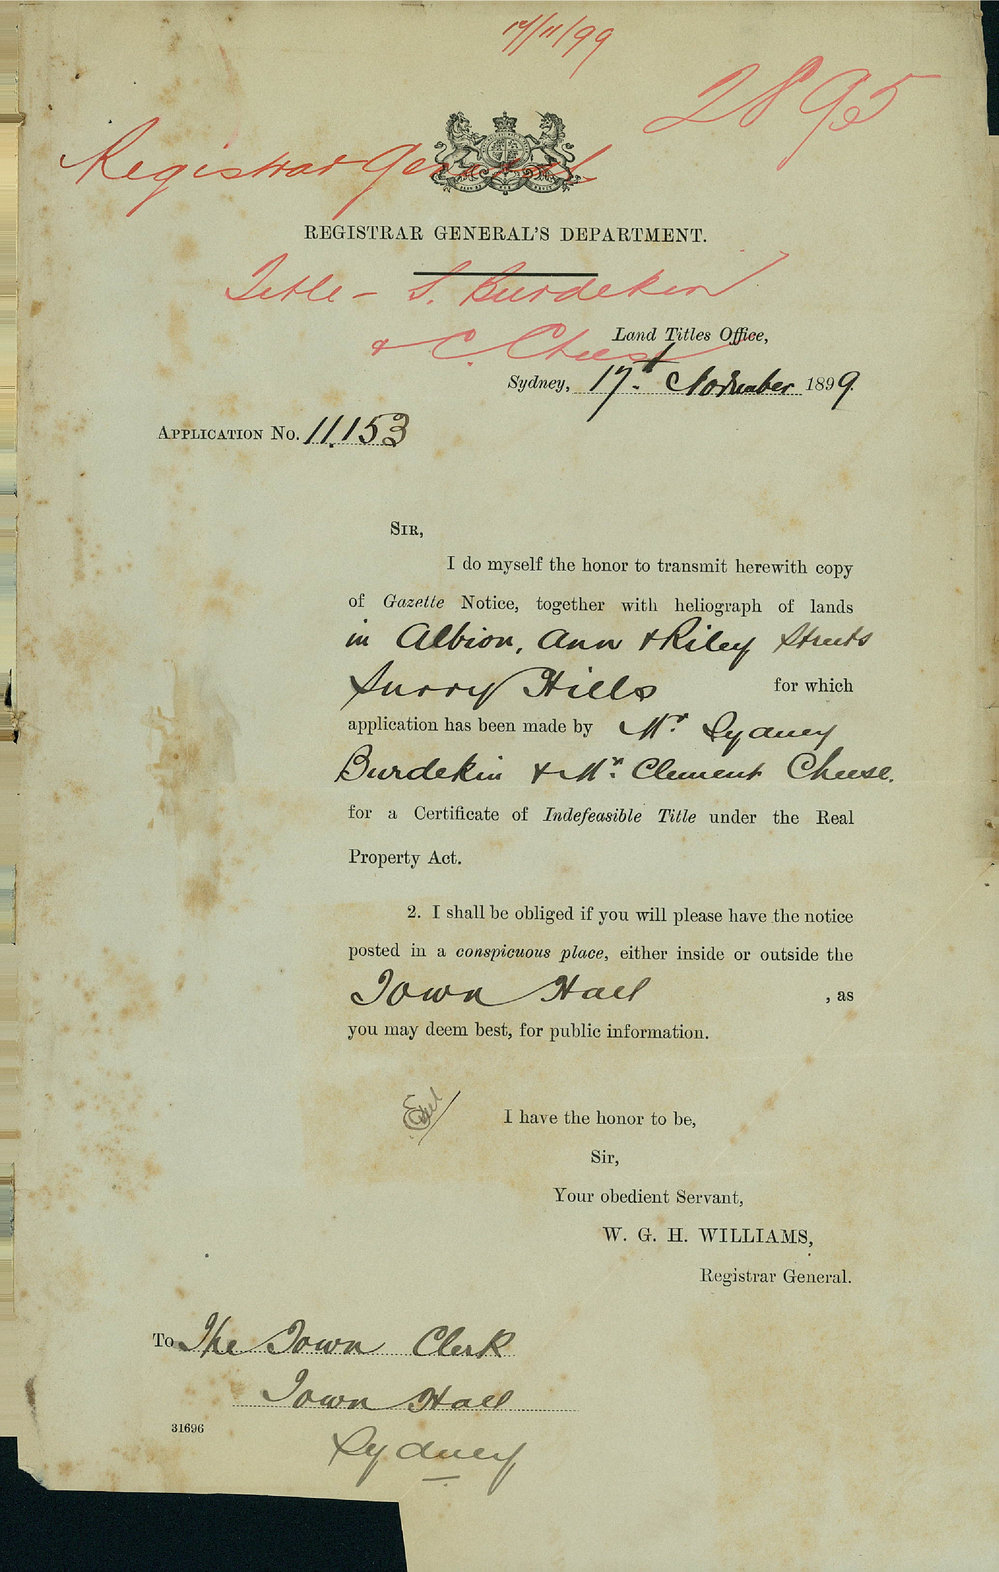 17/11/99
2895
Registrar General
REGISTRAR GENERAL'S DEPARTMENT.
Title - S. Burdekin
& C. Cheese
Land Titles Office,
Sydney, 17th November 1899.
APPLICATION No. 11,153
SIR,
I do myself the honor to transmit herewith copy
of Gazette Notice, together with heliograph of lands
in Albion, Ann & Riley Streets
Surry Hills for which
application has been made by Mr. Sydney
Burdekin & Mr. Clement Cheese.
for a Certificate of Indefeasible Title under the Real
Property Act.
2. I shall be obliged if you will please have the notice
posted in a conspicuous place, either inside or outside the
Town Hall , as
you may deem best, for public information.
I have the honor to be,
Sir,
Your obedient Servant,
W. G. H. WILLIAMS,
Registrar General.
To The Town Clerk
Town Hall
31696
Sydney